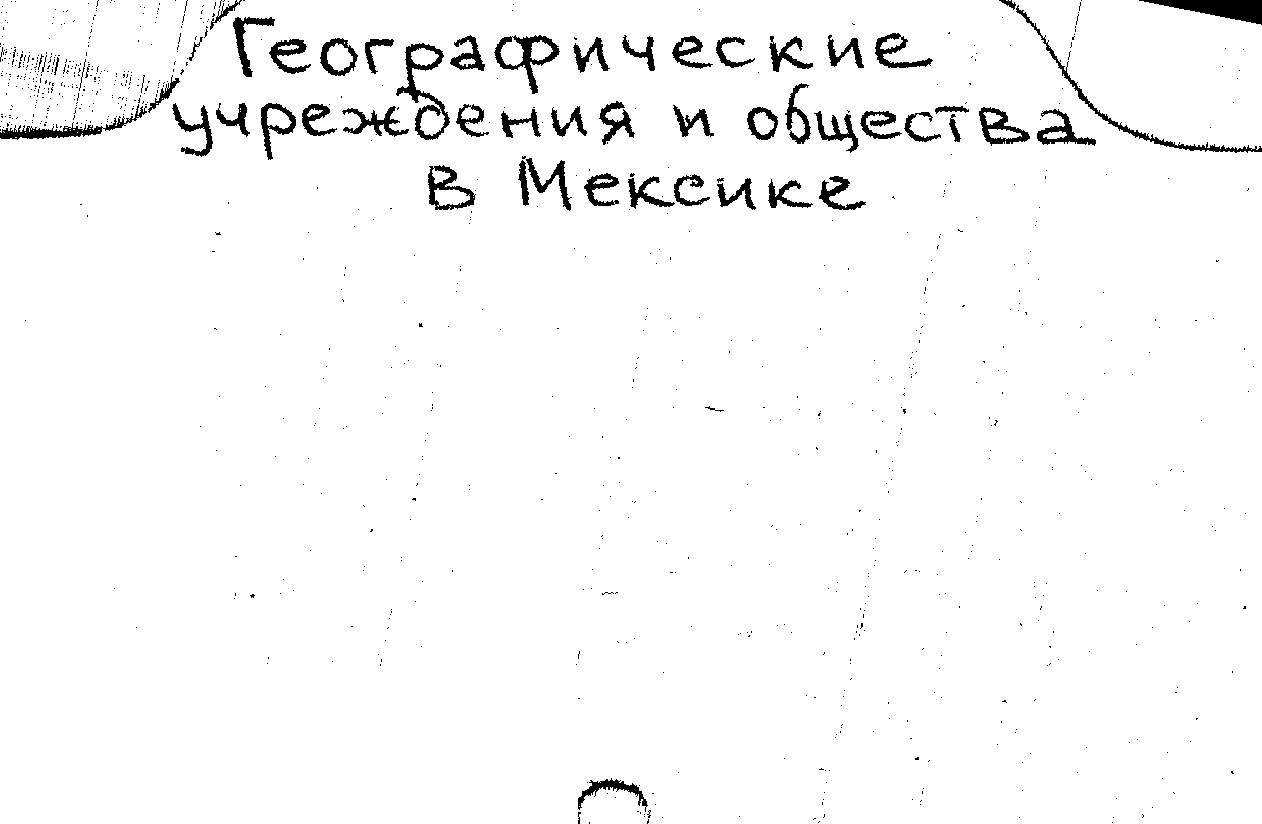 Географические
учреждения и общества
в Мексике